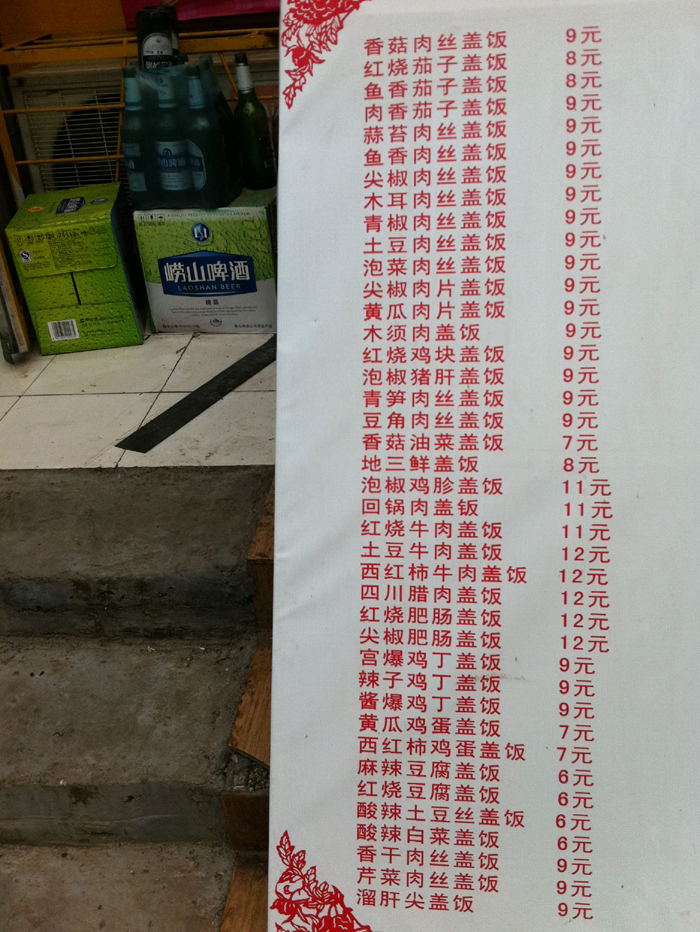 崂山啤酒
LAOSHAN BEER
精品
香菇肉丝盖饭 9元
红烧茄子盖饭 8元
鱼香茄子盖饭 8元
肉香茄子盖饭 9元
蒜苔肉丝盖饭 9元
鱼香肉丝盖饭 9元
尖椒肉丝盖饭 9元
木耳肉丝盖饭 9元
青椒肉丝盖饭 9元
土豆肉丝盖饭 9元
泡菜肉丝盖饭 9元
尖椒肉片盖饭 9元
黄瓜肉片盖饭 9元
木须肉盖饭 9元
红烧鸡块盖饭 9元
泡椒猪肝盖饭 9元
青笋肉丝盖饭 9元
豆角肉丝盖饭 9元
香菇油菜盖饭 7元
地三鲜盖饭 8元
泡椒鸡胗盖饭 11元
回锅肉盖钣 11元
红烧牛肉盖饭 11元
土豆牛肉盖饭 12元
西红柿牛肉盖饭 12元
四川腊肉盖饭 12元
红烧肥肠盖饭 12元
尖椒肥肠盖饭 12元
宫爆鸡丁盖饭 9元
辣子鸡丁盖饭 9元
酱爆鸡丁盖饭 9元
黄瓜鸡蛋盖饭 7元
西红柿鸡蛋盖饭 7元
麻辣豆腐盖饭 6元
红烧豆腐盖饭 6元
酸辣土豆丝盖饭 6元
酸辣白菜盖饭 6元
香干肉丝盖饭 9元
芹菜肉丝盖饭 9元
溜肝尖盖饭 9元